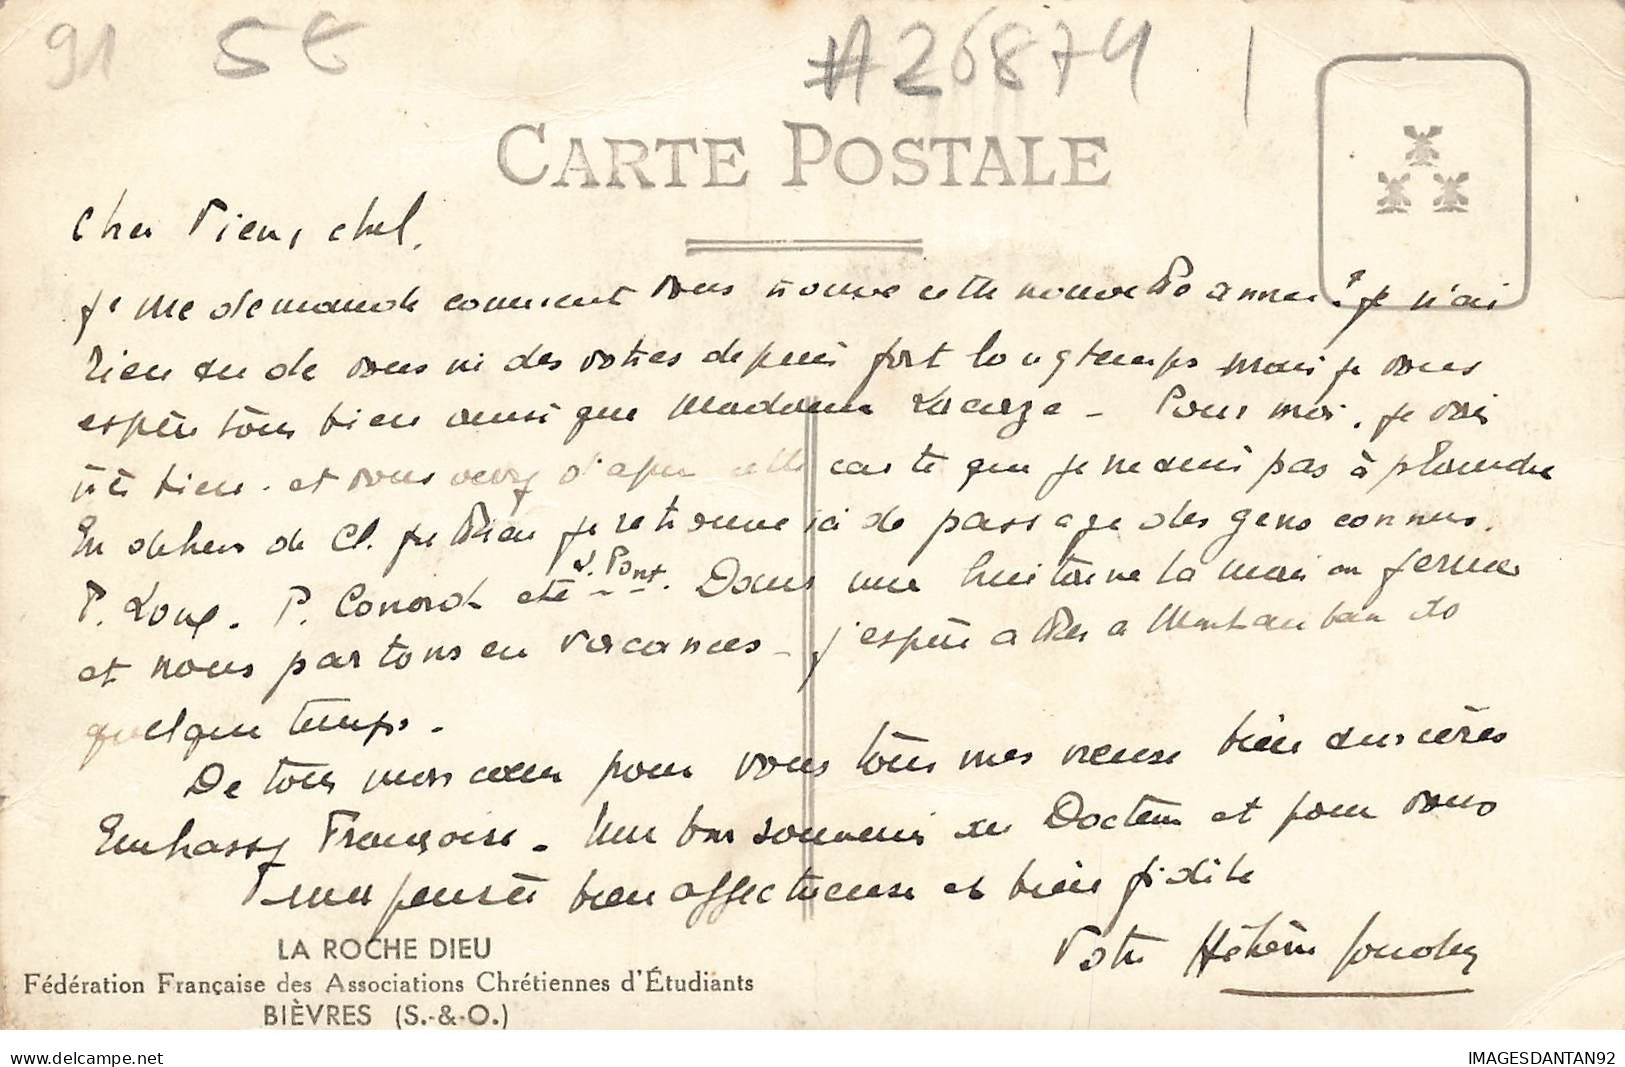 91 5€ #26874
CARTE POSTALE
Cher Vieux chef,
Je me demande comment vous trouve cette nouvelle année ? Je n'ai
rien eu de vous ni des votres depuis fort longtemps mais je vous
espère tous bien ainsi que Madame Par moi, je vais
très bien. et vous verrez d'après cette carte que je ne suis pas à plaindre
En dehors de Cl. je retrouve ici de passage des gens connus.
P. P. Conord etc Pont. Dans une huitaine la maison ferme
et nous partons en vacances - j'espère aller à Montauban
quelque temps.
De tout mon coeur pour vous tous mes voeux bien sincères
Embrassez Françoise. Mon bon souvenir au Docteur et pour vous
ma pensée bien affectueuse et bien fidèle
Votre Hélène
LA ROCHE DIEU
Fédération Française des Associations Chrétiennes d'Étudiants
BIÈVRES (S.-&-O.)
www.delcampe.net IMAGESDANTAN92